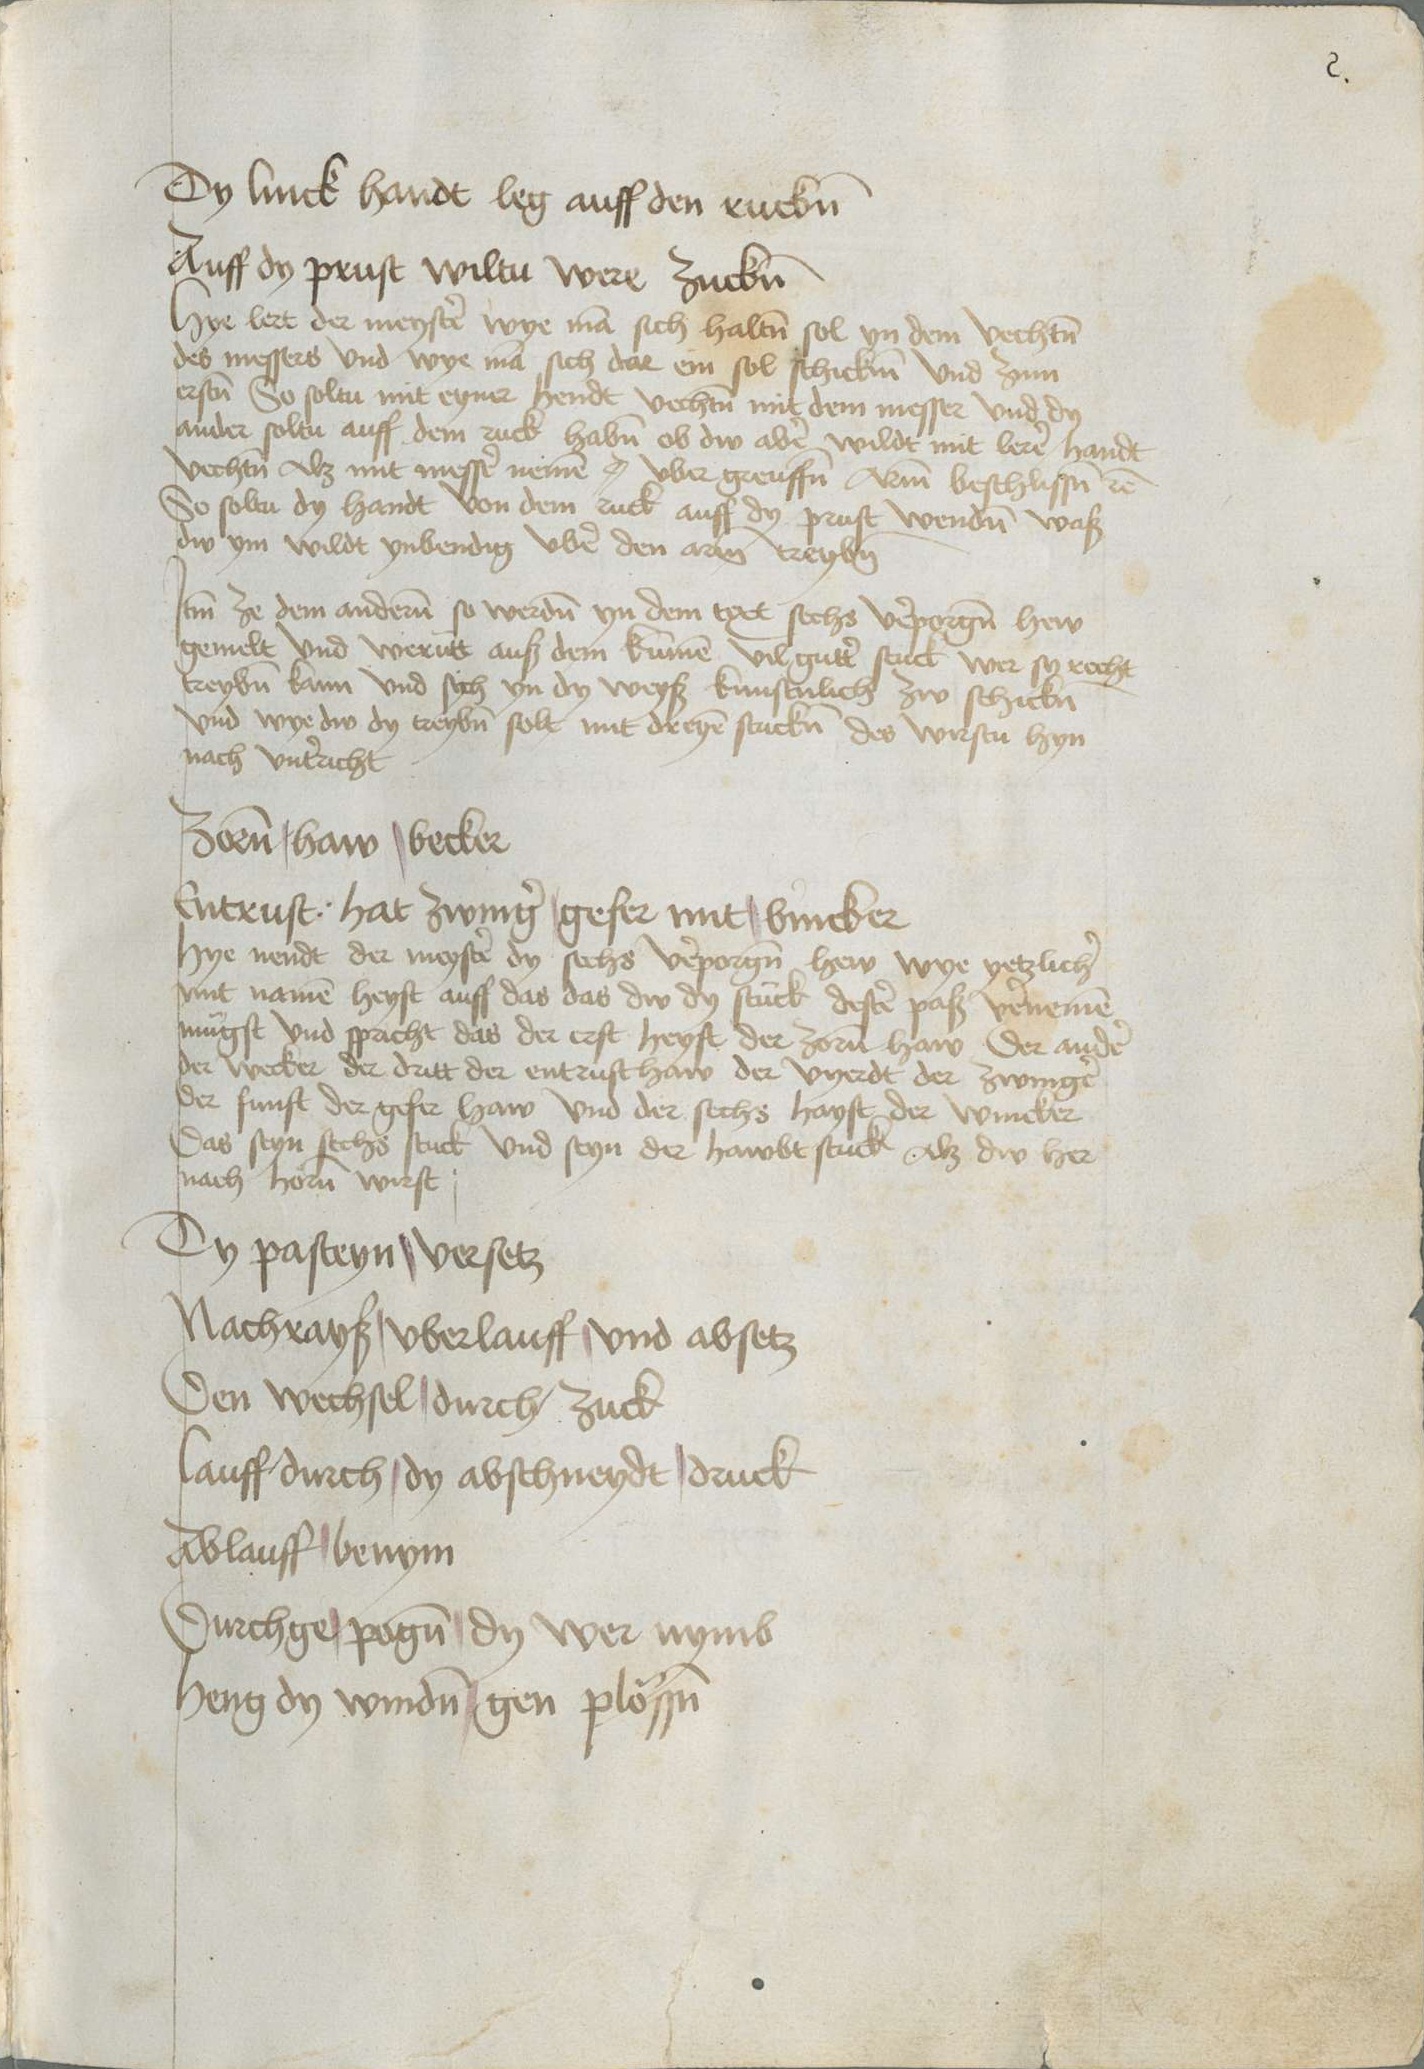 2.
Dy linck handt leg auff den ruckñ
Auff dy prust wiltu were zuckñ
Hye lert der meystẽ wye mã sich haltñ sol yn dem vechtñ
des messers vnd wye mã sich dar ein sol schickñ vnd zum
erstñ So soltu mit eyner hendt vechtñ mit dem messer vnd dy
ander soltu auff dem ruck habñ ob dw abẽ wildt mit lerẽ handt
vechtñ Alz mit messẽ nemẽ vber greuffñ Arm beschlissñ rẽ
So soltu dy handt von dem ruck auff dy prust wendñ waß
dw ym wildt ynbendig vbẽ den arm treybñ
Itm̃ ze dem anderñ so werdñ yn dem text sechs vẽporgñ hew
gemelt vnd werñtt auß dem kum̃e vil guttẽ stuck wer sy recht
treybñ kann vnd sych yn dy weyß kunstulich zw schickñ
vnd wye dw dy treybñ solt mit dreyẽ stuckñ des wirstu hyn
nach vntẽricht
Zorñ haw becker
Entrust hat zwingẽ gefer mit wincker
Hye nendt der meystẽ dy sechs vẽporgñ hew wye yetzlichẽ
mit namẽ heyst auff das das dw dy stuck destẽ paß vẽnemẽ
mugst vnd spricht das der erst heyst der zorñ haw Der andẽ
der wecker der dritt der entrusthaw der vyerdt der zwingẽ
der funft der gefer haw vnd der sechs hayst der wincker
Das seyn sechs stuck vnd seyn der hawbt stuck Alz dw her
nach horñ wirst
Dy pasteyn versetz
Nachrayß vberlauff vnd absetz
Den wechsel durch zuck
Lauff durch dy abschneydt druck
Ablauff benym
Durchge pogñ dy wer nymb
Heng dy windñ gen plössñ